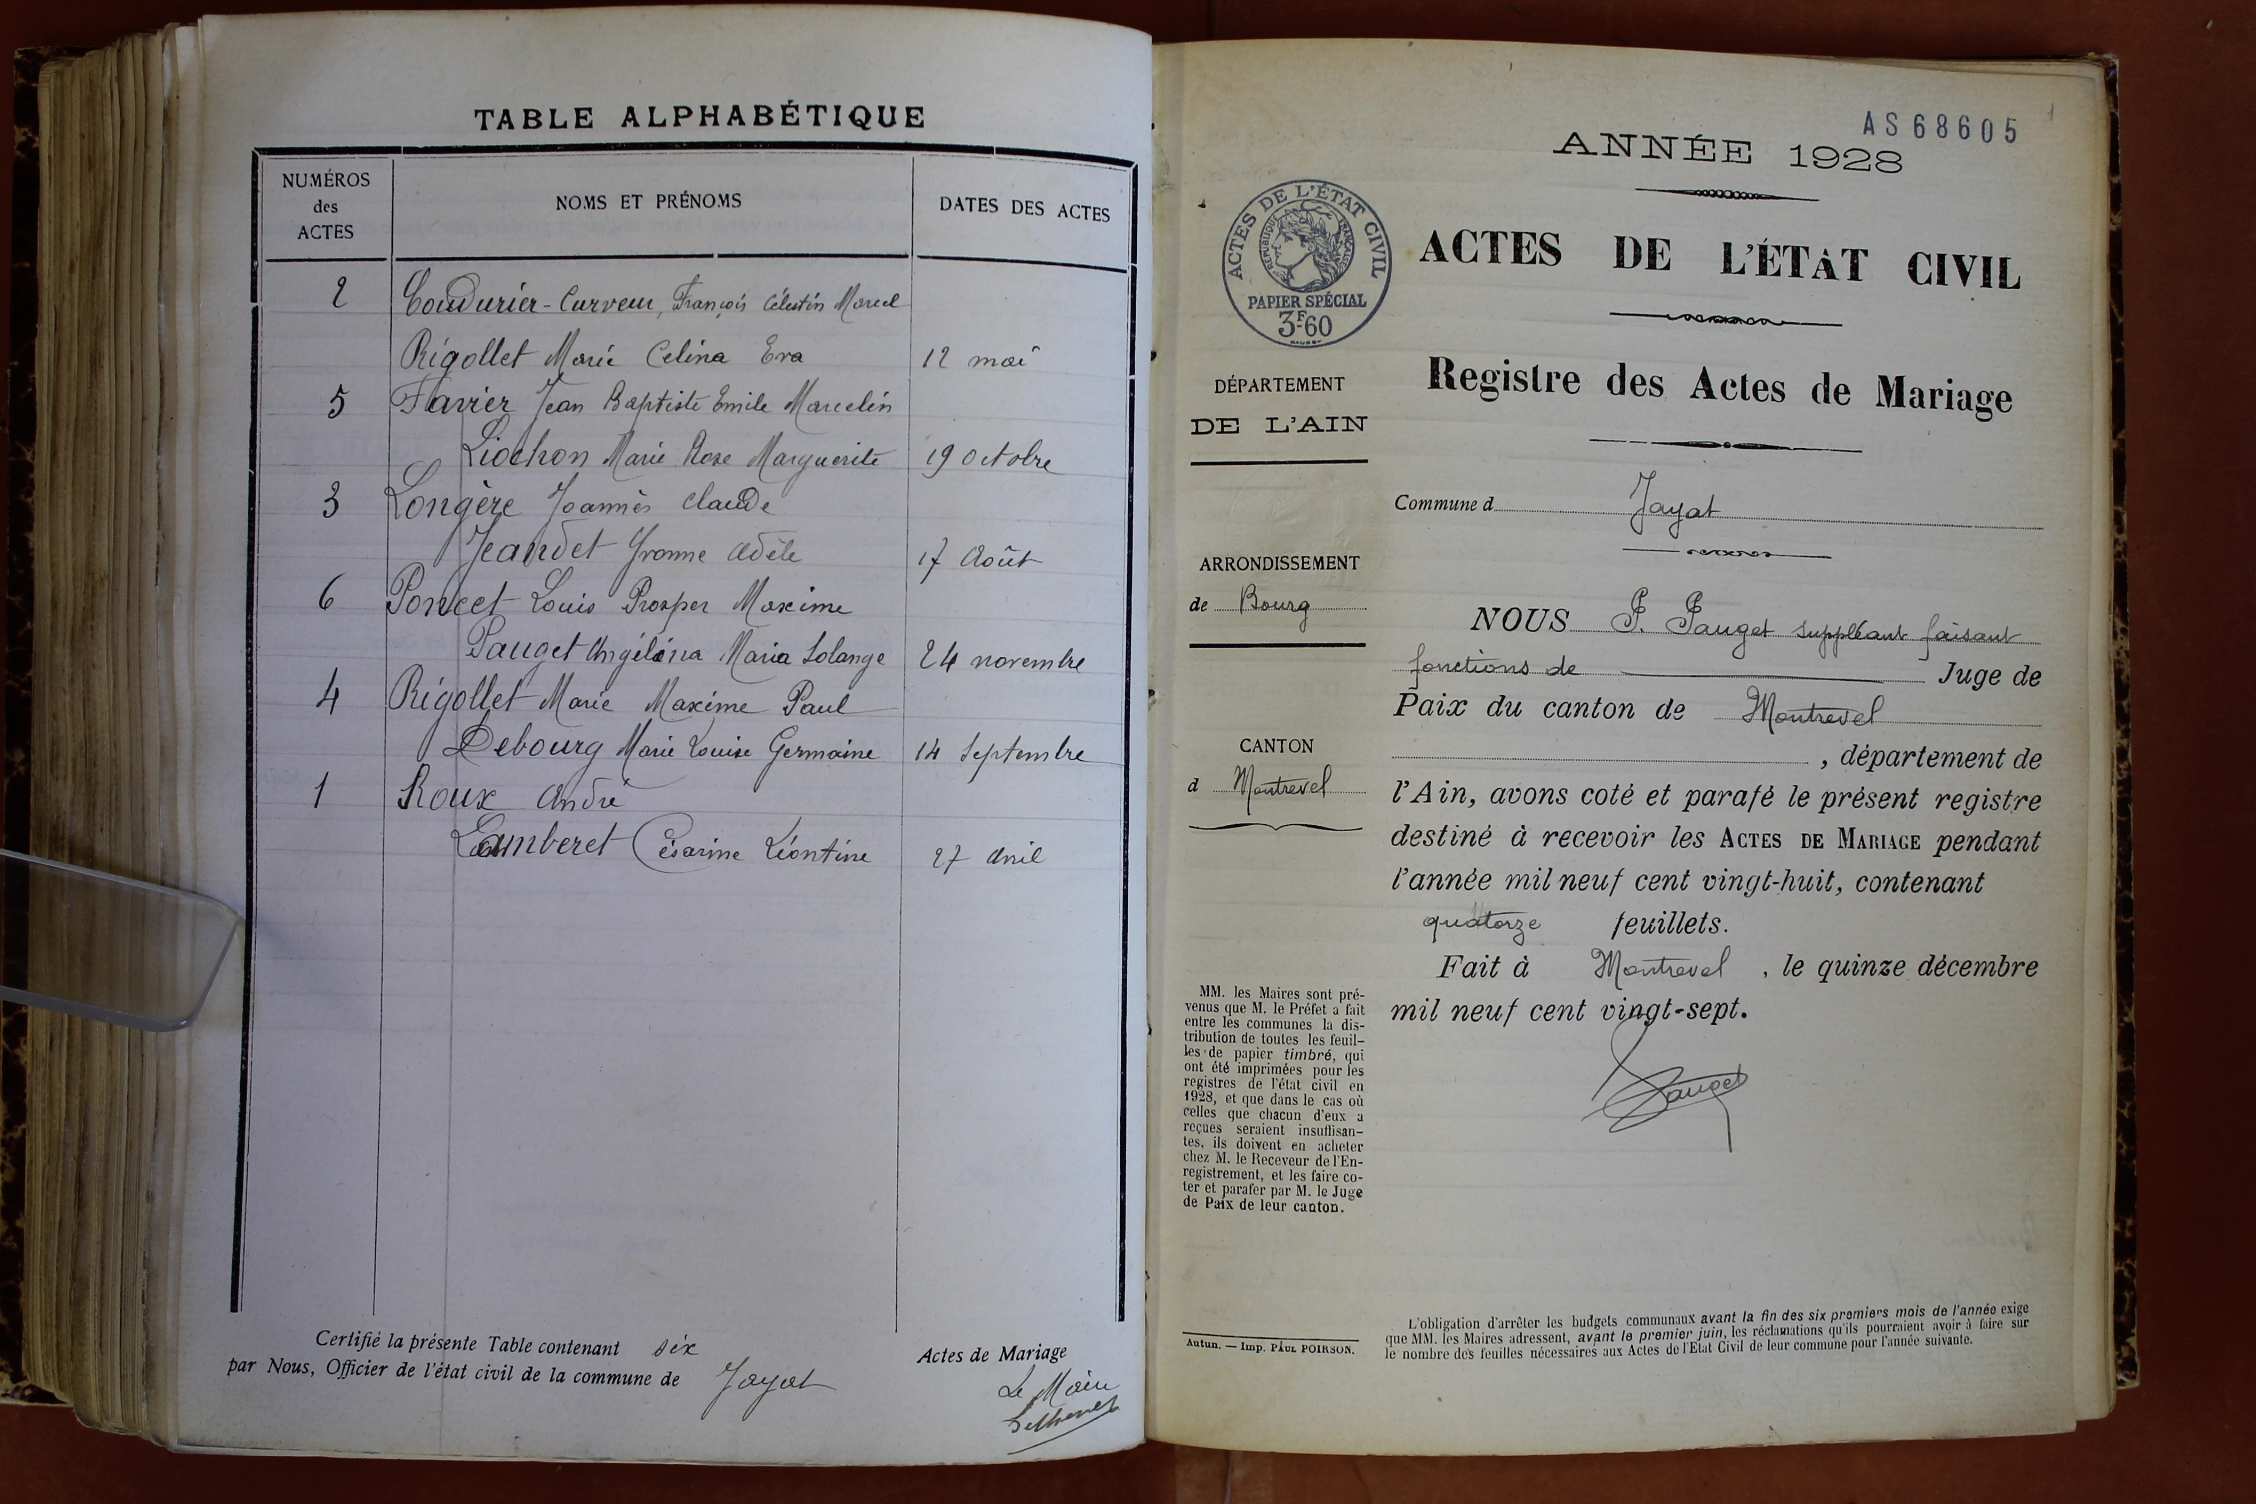 TABLE ALPHABÉTIQUE
NUMÉROS
des
ACTES
NOMS ET PRÉNOMS
DATES DES ACTES
2 Coudurier-Curveur, François Célestin Marcel
Rigollet Marie Celina Eva 12 mai
5 Favier Jean Baptiste Emile Marcelin
Liochon Marie Rose Marguerite 19 octobre
3 Longère Joannès Claude
Jeandet Yvonne Adèle 17 Août
6 Poncet Louis Prosper Maxime
Pauget Angélina Maria Solange 24 novembre
4 Rigollet Marie Maxime Paul
Debourg Marie Louise Germaine 14 Septembre
1 Roux André
Lamberet Césarine Léontine 27 Avril
Certifié la présente Table contenant six Actes de Mariage
par Nous, Officier de l'état civil de la commune de Jayat
Le Maire
AS68605
1
ANNÉE 1928
ACTES DE L'ÉTAT CIVIL
RÉPUBLIQUE FRANÇAISE
PAPIER SPÉCIAL
3F60
ACTES DE L'ÉTAT CIVIL
Registre des Actes de Mariage
DÉPARTEMENT
DE L'AIN
Commune d Jayat
ARRONDISSEMENT
de Bourg
CANTON
d Montrevel
NOUS P. Pauget suppléant faisant
fonctions de Juge de
Paix du canton de Montrevel
, département de
l'Ain, avons coté et parafé le présent registre
destiné à recevoir les ACTES DE MARIAGE pendant
l'année mil neuf cent vingt-huit, contenant
quatorze feuillets.
Fait à Montrevel, le quinze décembre
mil neuf cent vingt-sept.
Pauget
MM. les Maires sont pré-
venus que M. le Préfet a fait
entre les communes la dis-
tribution de toutes les feuil-
les de papier timbré, qui
ont été imprimées pour les
registres de l'état civil en
1928, et que dans le cas où
celles que chacun d'eux a
reçues seraient insuffisan-
tes, ils doivent en acheter
chez M. le Receveur de l'En-
registrement, et les faire co-
ter et parafer par M. le Juge
de Paix de leur canton.
Autun. — Imp. PAUL POIRSON.
L'obligation d'arrêter les budgets communaux avant la fin des six premiers mois de l'année exige
que MM. les Maires adressent, avant le premier juin, les réclamations qu'ils pourraient avoir à faire sur
le nombre des feuilles nécessaires aux Actes de l'Etat Civil de leur commune pour l'année suivante.